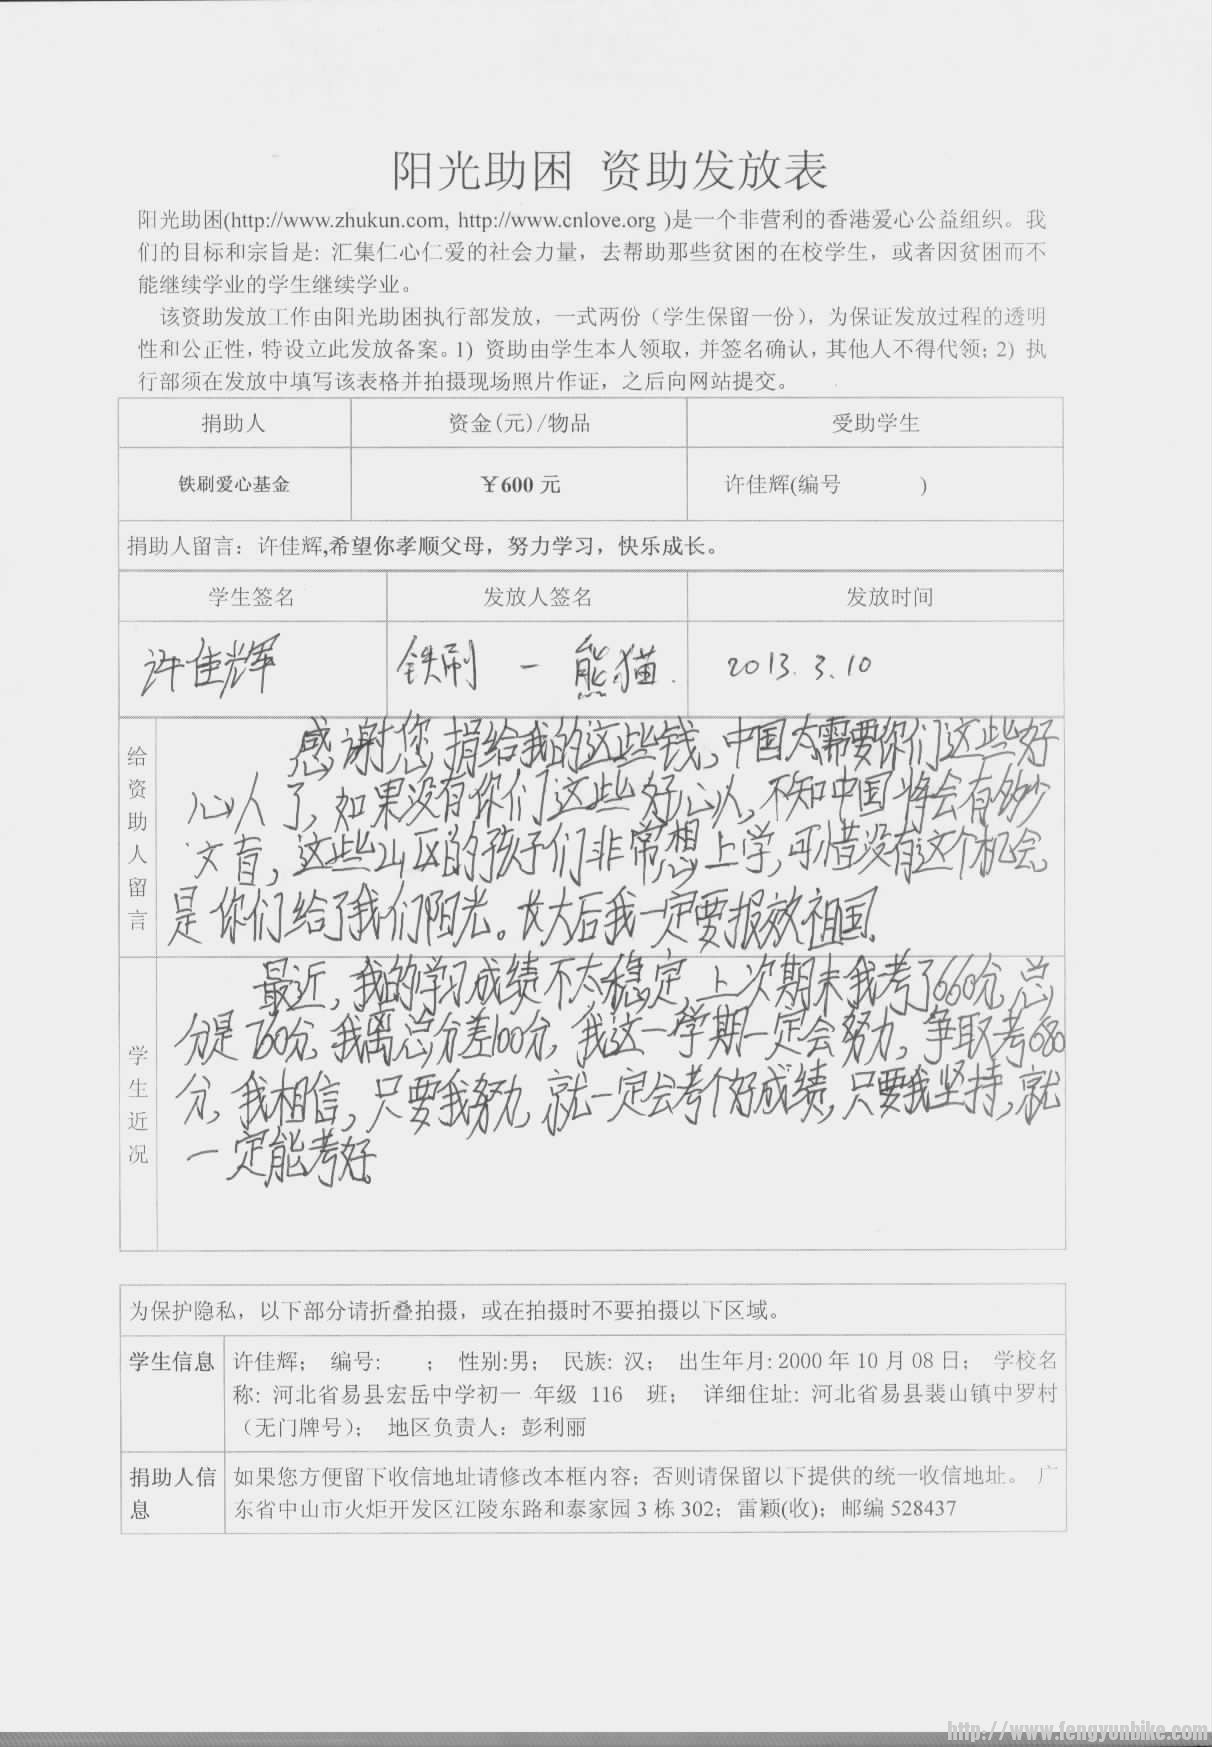 阳光助困 资助发放表
阳光助困(http://www.zhukun.com, http://www.cnlove.org )是一个非营利的香港爱心公益组织。我
们的目标和宗旨是: 汇集仁心仁爱的社会力量，去帮助那些贫困的在校学生，或者因贫困而不
能继续学业的学生继续学业。
该资助发放工作由阳光助困执行部发放，一式两份（学生保留一份），为保证发放过程的透明
性和公正性，特设立此发放备案。1) 资助由学生本人领取，并签名确认，其他人不得代领；2) 执
行部须在发放中填写该表格并拍摄现场照片作证，之后向网站提交。
捐助人 资金(元)/物品 受助学生
铁刷爱心基金 ￥600 元 许佳辉(编号 )
捐助人留言：许佳辉,希望你孝顺父母，努力学习，快乐成长。
学生签名 发放人签名 发放时间
许佳辉 铁刷 － 熊猫. 2013.3.10
给资助人留言
感谢您捐给我的这些钱,中国太需要你们这些好
心人了,如果没有你们这些好心人,不知中国将会有多少
文盲,这些山区的孩子们非常想上学,可惜没有这个机会,
是你们给了我们阳光。长大后我一定要报效祖国.
学生近况
最近,我的学习成绩不太稳定,上次期末我考了660分,总
分是760分,我离总分差100分,我这一学期一定会努力,争取考680
分,我相信,只要我努力,就一定会考个好成绩,只要我坚持,就
一定能考好.
为保护隐私，以下部分请折叠拍摄，或在拍摄时不要拍摄以下区域。
学生信息 许佳辉； 编号: ； 性别:男； 民族: 汉； 出生年月: 2000 年 10 月 08 日； 学校名
称: 河北省易县宏岳中学初一 年级 116 班； 详细住址: 河北省易县裴山镇中罗村
（无门牌号）； 地区负责人：彭利丽
捐助人信息 如果您方便留下收信地址请修改本框内容；否则请保留以下提供的统一收信地址。 广
东省中山市火炬开发区江陵东路和泰家园 3 栋 302；雷颖(收)；邮编 528437
http://www.fengyunbike.com